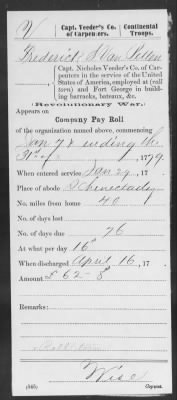 V
Capt. Veeder's Co. of Carpenters.
Continental Troops.
Frederick S Van Petten
Capt. Nicholas Veeder's Company of Car-
penters in the service of the United
States of America, employed at (rail
town) and Fort George in build-
ing barracks, bateaux, &c.
(Revolutionary War.)
Appears on
Company Pay Roll
of the organization named above, commencing
Jan 7 & ending the
1779.
When entered service Jan 29, 17
Place of abode Schenectady
No. miles from home 40
No. of days lost
No. of days due 76
At what per day 16
When discharged April 16, 17
Amount £ 62 - 8
Remarks:
Wise
(565) Copyist.